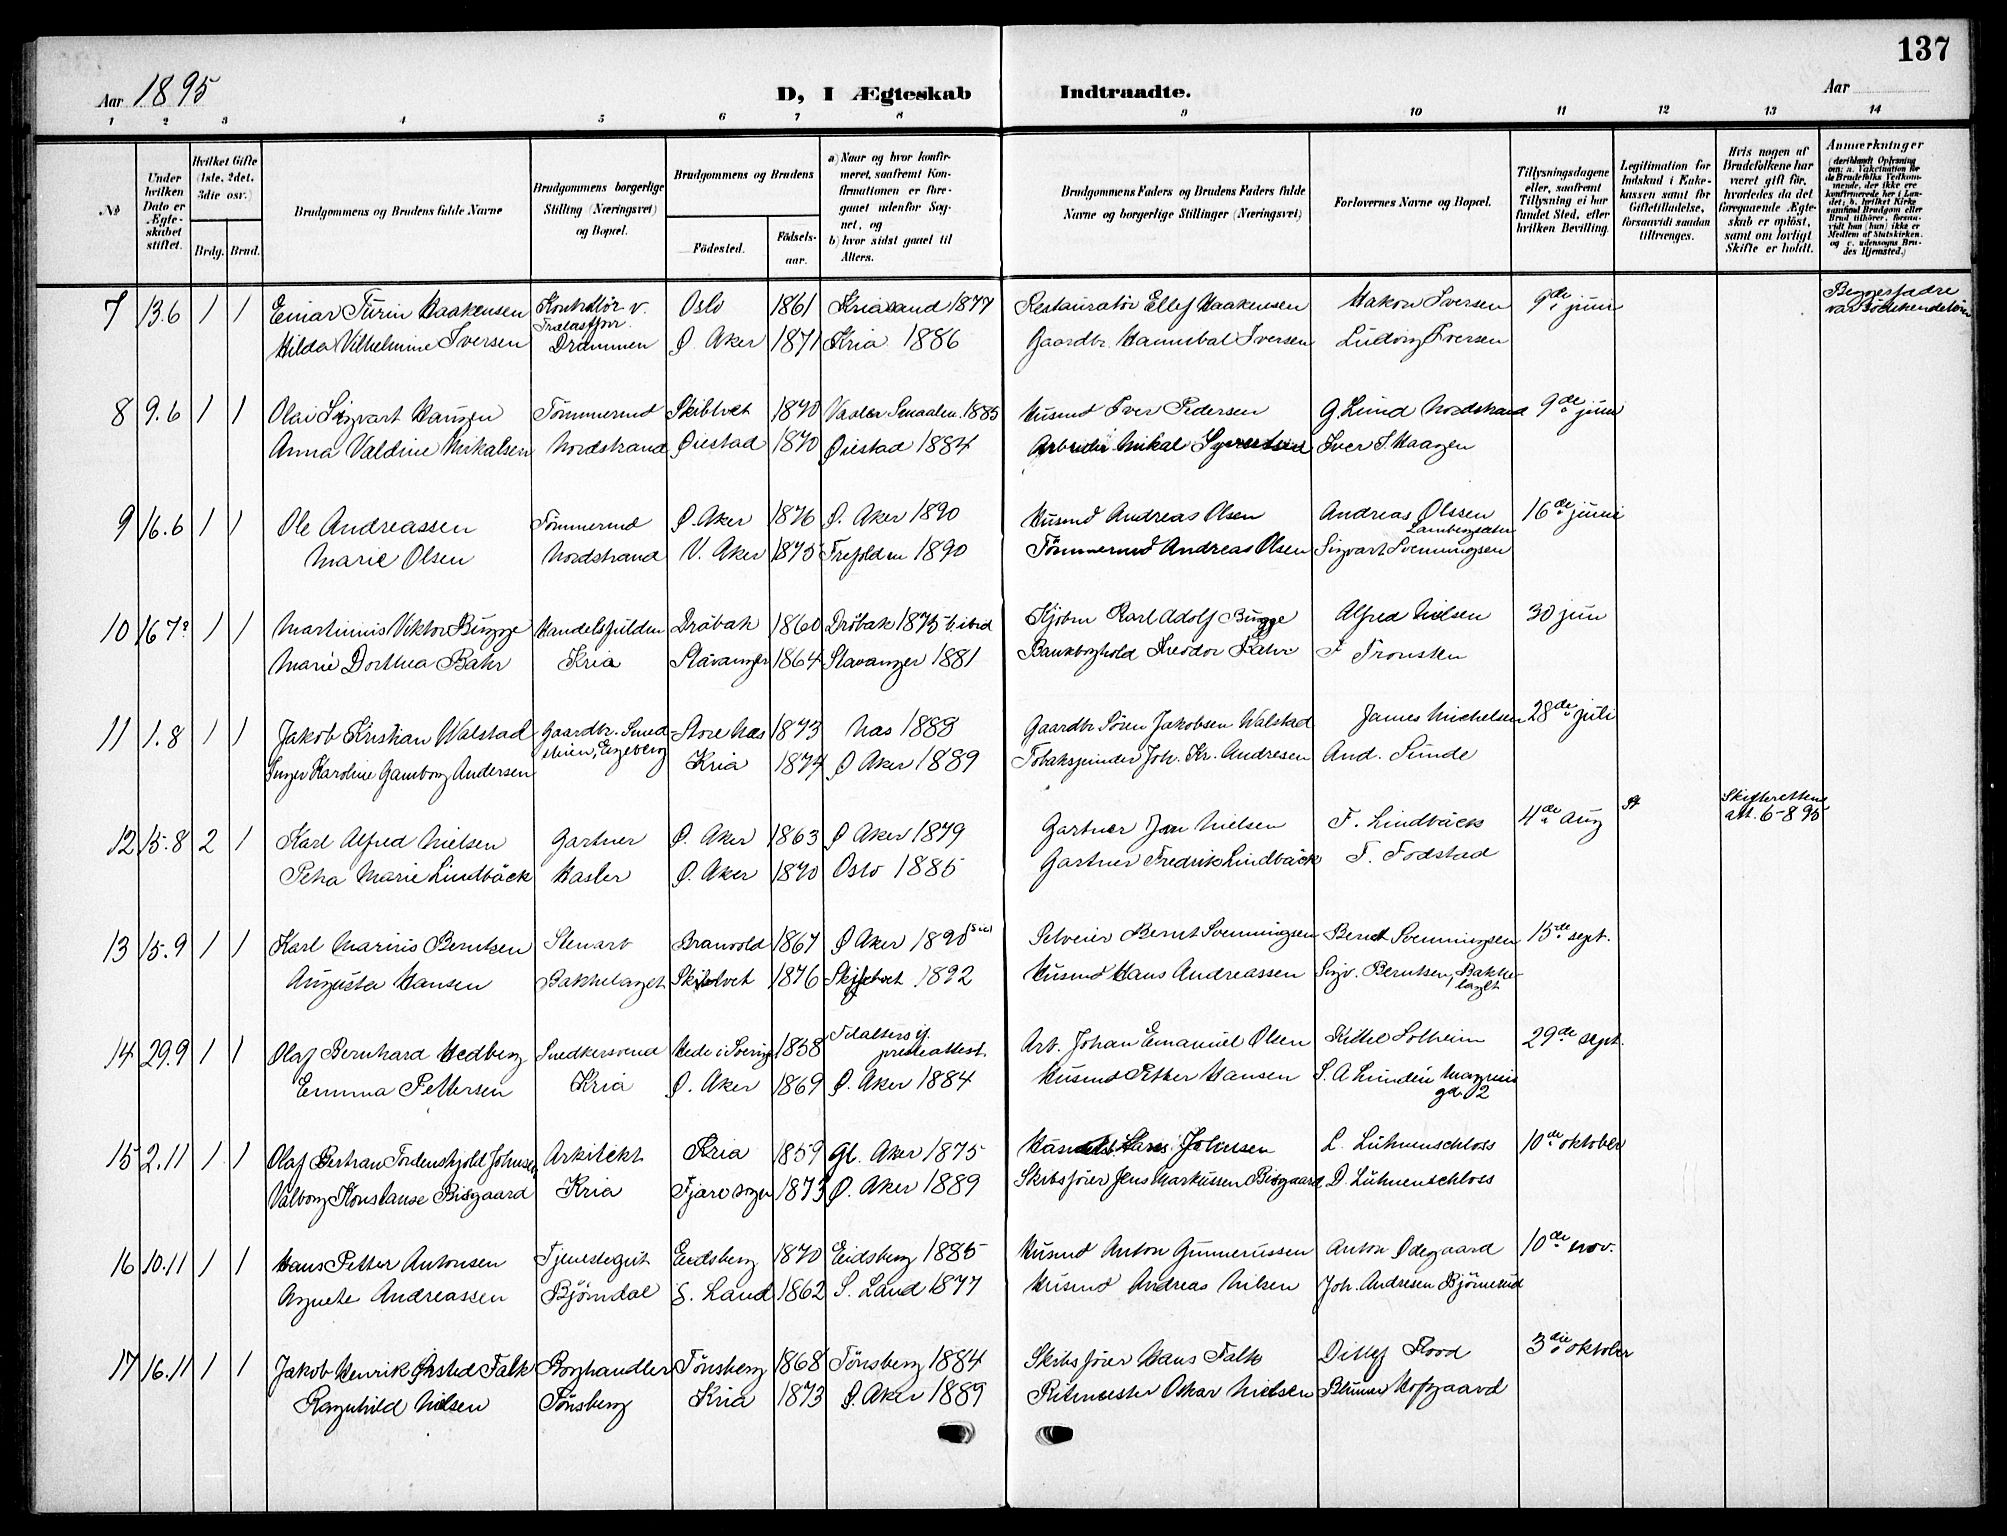 137
Aar 1895
D, I Ægteskab Indtraadte.
Aar
1 2 3 4 5 6 7 8 9 10 11 12 13 14
No
Under hvilken Dato er Ægteskabet stiftet.
Hvilket Gifte (1ste, 2det, 3die osv.)
Brdg. Brud.
Brudgommens og Brudens fulde Navne
Brudgommens borgerlige Stilling (Næringsvei) og Bopæl.
Brudgommens og Brudens
Fødested.
Fødselsaar.
a) Naar og hvor konfirmeret, saafremt Konfirmationen er foregaaet udenfor Sognet, og
b) hvor sidst gaaet til Alters.
Brudgommens Faders og Brudens Faders fulde Navne og borgerlige Stillinger (Næringsvei)
Forlovernes Navne og Bopæl.
Tillysningsdagene eller, saafremt Tillysning ei har fundet Sted, efter hvilken Bevilling.
Legitimation for Indskud i Enkekassen samt for Giftetilladelse, forsaavidt saadan tiltrænges.
Hvis nogen af Brudefolkene har været gift før, hvorledes da det foregaaende Ægteskab er opløst, samt om lovligt Skifte er holdt.
Anmærkninger
(deriblandt Oplysning om: a. Vakcination for de Brudefolks Vedkommende, der ikke ere konfirmerede her i Landet; b. hvilket Kirkesamfund Brudgom eller Brud tilhører, forsaavidt han (hun) ikke er Medlem af Statskirken, og c. udensogns Brudes Hjemsted.)
7 13.6 1 1 Einar Turin Haakensen Kontrolør v. Oslo 1861 Kriasand 1877 Restauratør Ellef Haakensen Hakon Iversen 9de juni Begges fadre
Hilda Vilhelmine Iversen Drammen Ø Aker 1871 Kria 1886 Gaardbr. Hannibal Iversen Ludvig Iversen
8 9.6 1 1 Olai Sigvart Hansen Tømmermd Skibtvet 1870 Vaaler Smaalen. 1885 Husmd Iver Pedersen G. Lund Nordstrand 9de juni
Anna Valdine Mikalsen Nordstrand Øiestad 1870 Øiestad 1884 Arbeider Mikal Syvertsen Iver S. Haagen
9 16.6 1 1 Ole Andreassen Tømmermd Ø. Aker 1876 Ø. Aker 1890 Husmd Andreas Olsen Andreas Olssen 16de juni
Lambergsæter
Marie Olsen Nordstrand V. Aker 1875 Trefolden 1890 Tømmermd Andreas Olsen Sigvart Svenningsen
10 16 7? 1 1 Martinius Viktor Bugge Handelsfuldm Drøbak 1860 Drøbak 1875 b. ibid Kjøbm Karl Adolf Bugge Alfred Nielsen 30 juni
Marie Dorthea Bahr Kria Stavanger 1864 Stavanger 1881 Bankboghold Theodor Bahr F Fronsten
11 1.8 1 1 Jakob Kristian Walstad Gaardbr. Smed Store Nas 1873 Nas 1888 Gaardbr Søren Jakobsen Walstad James Michelsen 28de juli
Inger Karoline Gamborg Andersen Kria 1874 Ø Aker 1889 Tobakspinder Joh. Kr. Andresen And. Sunde
12 15.8 2 1 Karl Alfred Nielsen Gartner Ø. Aker 1863 Ø Aker 1879 Gartner Jon Nielsen F. Lindbäck 4de aug Skifterettens att. 6-8 95
Petra Marie Lindbäck Hasler Ø. Aker 1870 Oslo 1885 Gartner Fredrik Lindbäck T. Fodstad
13 15.9 1 1 Karl Marius Berntsen Stenarb Branvold 1867 Ø Aker 1890 (sic) Selveier Bernt Svenningsen Bernt Svenningsen 15de sept.
Augusta Hansen Bakkelaget Skibtvet 1876 Skibtvet 1892 Husmd Hans Andreassen Sigv. Berntsen, Bakkelaget
14 29.9 1 1 Olaf Bernhard Hedberg Snedkersvend Hede i Sverige 1858 Tilalters if. presteattest. Arb. Johan Emanuel Olsen Kittel Solheim 29de sept.
Emma Pettersen Kria Ø. Aker 1869 Ø. Aker 1884 Husmd Petter Hansen S. A Lundén Magnus gd. 2
15 2.11 1 1 Olaf Bertran Tordenskjold Johnsen Arkitekt Kria 1859 Gl. Aker 1875 Lars Johnsen L. Lühnenschloss 10de oktober
Valborg Konstanse Bisgaard Kria Fjare sogn 1873 Ø. Aker 1889 Skibsfører Jens Markussen Bisgaard D. Lühnenschloss
16 10.11 1 1 Hans Petter Antonsen Tjenestegut Eidsberg 1870 Eidsberg 1885 Husmd Anton Gunnerussen Anton Ødegaard 10de nov.
Agnete Andreassen Bjørndal S. Land 1862 S. Land 1877 Husmd Andreas Nilsen Joh. Andresen Bjørnerud
17 16.11 1 1 Jakob Henrik Ørsted Falk Boghandler Tønsberg 1868 Tønsberg 1884 Skibsfører Hans Falk Ditlef Flood 3die oktober
Ragnhild Nielsen Tønsberg Kria 1873 Ø. Aker 1889 Ritmester Oskar Nielsen Hofgaard